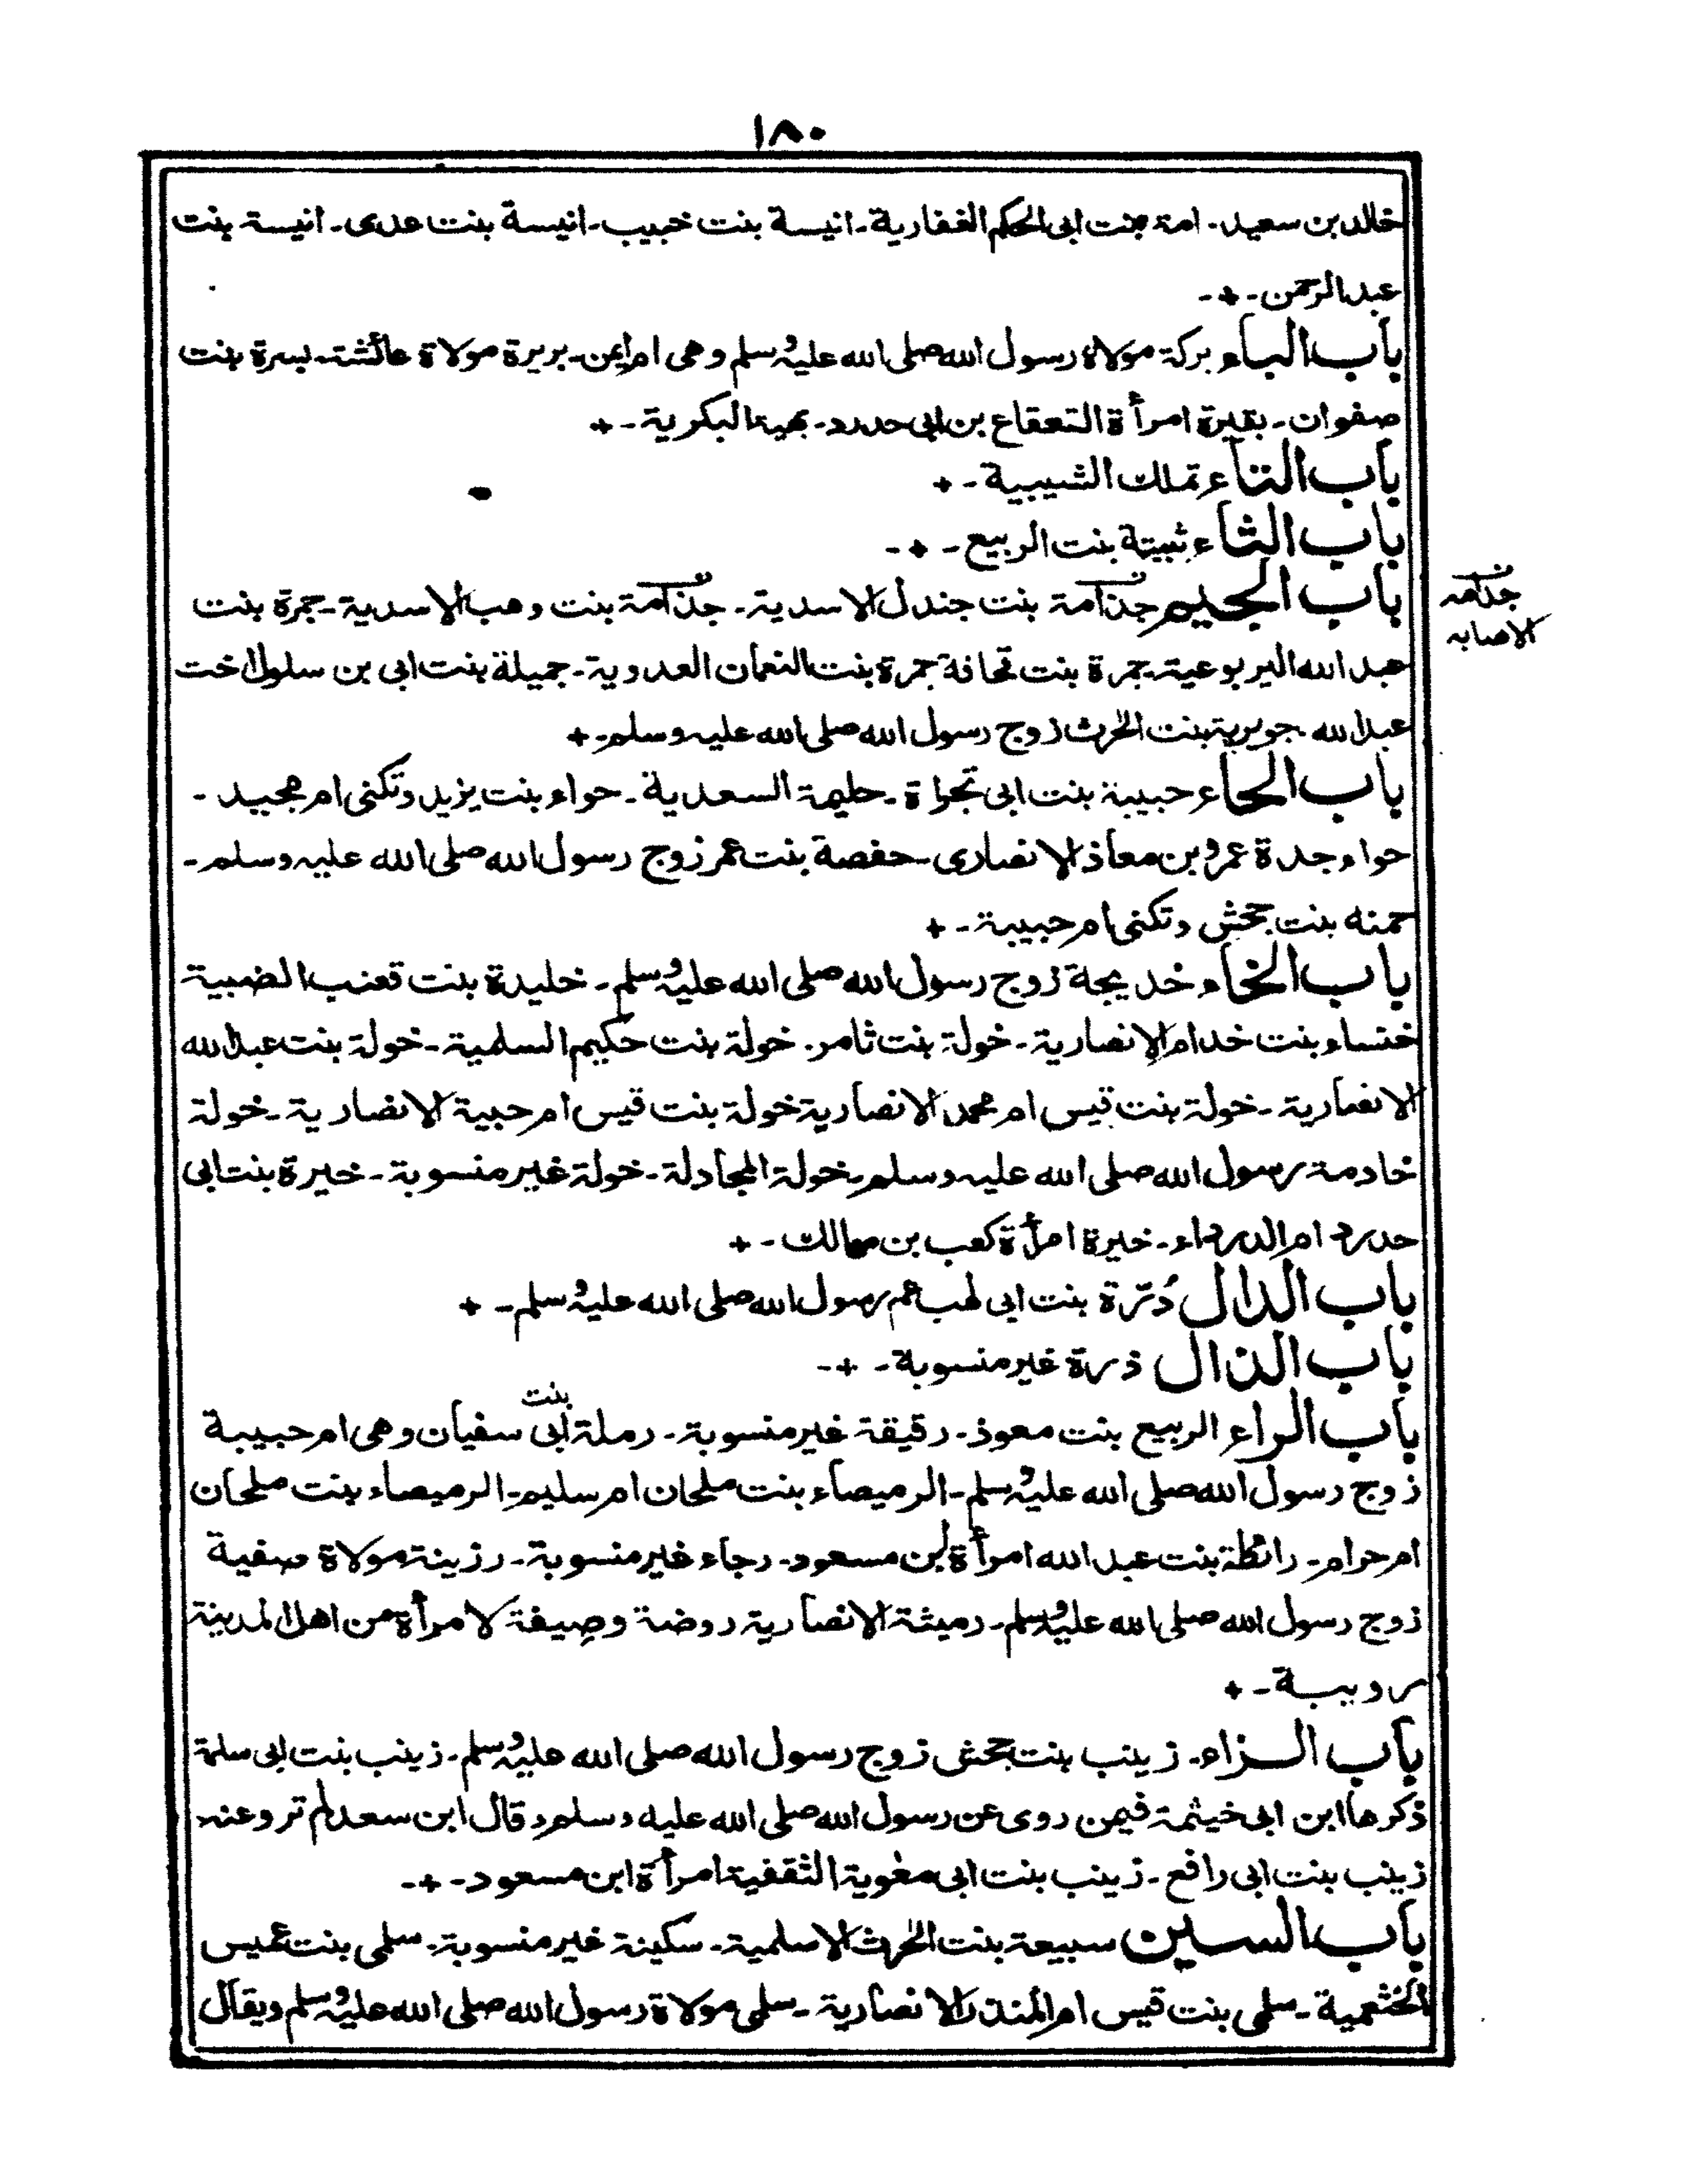 ١٨٠
خالد بن سعيد - امة بنت ابى الحكم الغفارية - انيسة بنت خبيب - انيسة بنت عدى - انيسة بنت
عبد الرحمن - + -
باب الباء بركة مولاة رسول الله صلى الله عليه وسلم وهى ام ايمن - بريرة مولاة عائشة - بسرة بنت
صفوان - بقيرة امرأة القعقاع بن ابى حدرد - بهية البكرية - +
باب التاء تملك الشيبية - +
باب الثاء ثبيتة بنت الربيع - + -
باب الجيم جذامة بنت جندل الاسدية - جذامة بنت وهب الاسدية - جمرة بنت
جذامه
الاصابه
عبد الله اليربوعية - جمرة بنت قحافة جمرة بنت النعمان العدوية - جميلة بنت ابى بن سلول اخت
عبد الله - جويرية بنت الحٰرث زوج رسول الله صلى الله عليه وسلم - +
باب الحاء حبيبة بنت ابى تجراة - حليمة السعدية - حواء بنت يزيد وتكنى ام مجيد -
حواء جدة عمرو بن معاذ الانصارى - حفصة بنت عمر زوج رسول الله صلى الله عليه وسلم -
حمنه بنت جحش وتكنى ام حبيبة - +
باب الخاء خديجة زوج رسول الله صلى الله عليه وسلم - خليدة بنت قعنب الضبية
خنساء بنت خدام الانصارية - خولة بنت ثامر - خولة بنت حكيم السلمية - خولة بنت عبد الله
الانصارية - خولة بنت قيس ام محمد الانصارية خولة بنت قيس ام حبيبة الانصارية - خولة
خادمة رسول الله صلى الله عليه وسلم - خولة المجادلة - خولة غير منسوبة - خيرة بنت ابى
حدرد ام الدرداء - خيرة امرأة كعب بن مالك - +
باب الدال دُرّة بنت ابى لهب عم رسول الله صلى الله عليه وسلم - +
باب الذال ذرة غير منسوبة - + -
باب الراء الربيع بنت معوذ - رقيقة غير منسوبة - رملة بنت ابى سفيان وهى ام حبيبة
زوج رسول الله صلى الله عليه وسلم - الرميصاء بنت ملحان ام سليم - الرميصاء بنت ملحان
ام حرام - رائطة بنت عبد الله امرأة ابن مسعود - رجاء غير منسوبة - رزينة مولاة صفية
زوج رسول الله صلى الله عليه وسلم - رميثة الانصارية روضة وصيفة لامرأة من اهل المدينة
روبيبة - +
باب الزاء - زينب بنت جحش زوج رسول الله صلى الله عليه وسلم - زينب بنت ابى سلمة
ذكرها ابن ابى خيثمة فيمن روى عن رسول الله صلى الله عليه وسلم وقال ابن سعد لم ترو عنه
زينب بنت ابى رافع - زينب بنت ابى معٰوية الثقفية امرأة ابن مسعود - + -
باب السين سبيعة بنت الحٰرث الاسلمية - سكينة غير منسوبة - سلمى بنت عميس
الخثعمية - سلمى بنت قيس ام المنذر الانصارية - سلمى مولاة رسول الله صلى الله عليه وسلم ويقال